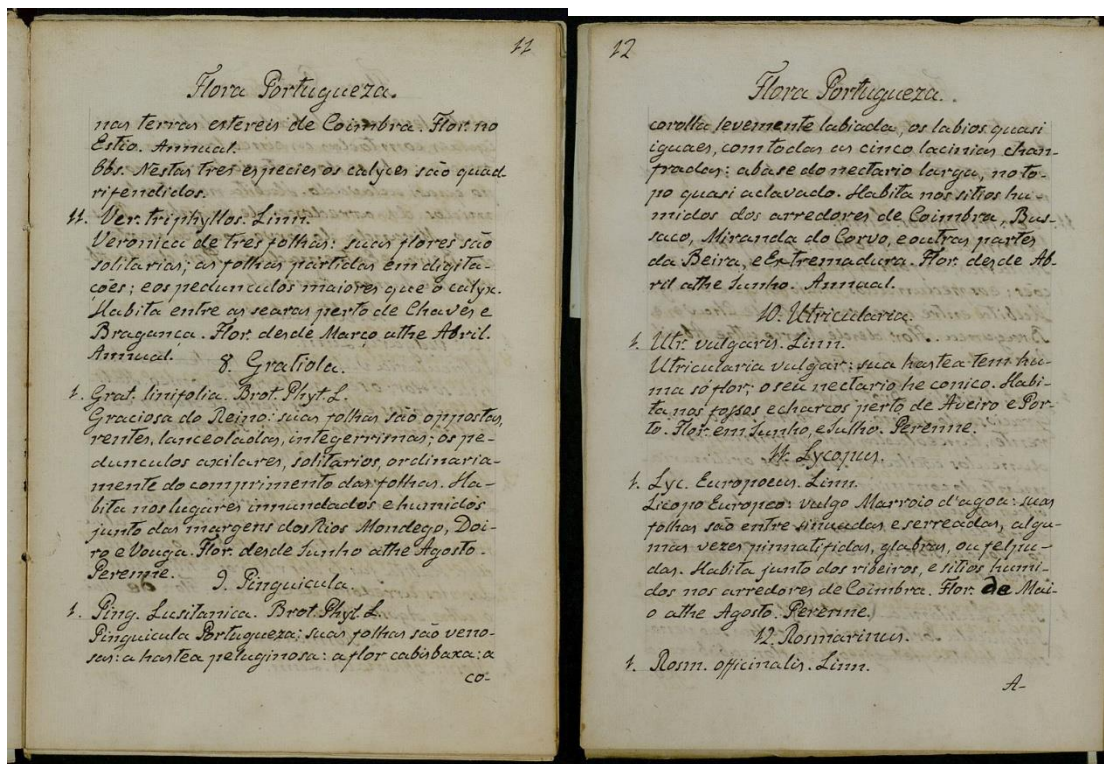 11
Flora Portugueza.
nas terras estereis de Coimbra. Flor. no
Estio. Annual.
Obs. Nestas tres especies os calyces são quad
rifendidos.
11. Ver. triphyllos. Linn.
Veronica de tres folhas: suas flores são
solitarias; as folhas partidas em digita-
ções; e os pedunculos maiores que o calyx.
Habita entre as searas perto de Chaves e
Bragança. Flor. desde Março athe Abril.
Annual.
8. Gratiola.
1. Grat. linifolia. Brot. Phyt. L.
Graciosa do Reino: suas folhas são oppostas,
rentes, lanceoladas, integerrimas; os pe-
dunculos axilares, solitarios, ordinaria-
mente do comprimento das folhas. Ha-
bita nos lugares innundados e humidos
junto das margens dos Rios Mondego, Doi-
ro e Vouga. Flor. desde Junho athe Agosto.
Perenne.
9. Pinguicula.
1. Ping. Lusitanica. Brot. Phyt. L.
Pinguicula Portugueza; suas folhas são veno-
sas: a hastea peluginosa: a flor cabisbaxa: a
co-
12
Flora Portugueza.
corolla levemente labiada, os labios quasi
iguaes, com todas as cinco lacinias chan-
fradas: a base do nectario larga, no to-
po quasi aclavado. Habita nos sitios hu-
midos dos arredores de Coimbra, Bus-
saco, Miranda do Corvo, e outras partes
da Beira, e Extremadura. Flor. desde Ab-
ril athe Junho. Annual.
10. Utricularia.
1. Utr. vulgaris. Linn.
Utricularia vulgar: sua hastea tem hu-
ma só flor; o seu nectario he conico. Habi-
ta nos fossos e charcos perto de Aveiro e Por-
to. Flor. em Junho, e Julho. Perenne.
11. Lycopus.
1. Lyc. Europoeus. Linn.
Licopo Europeo: vulgo Marroio d'agoa: suas
folhas são entre sinuadas e serreadas, algu-
mas vezes pinnatifidas, glabras, ou felpu-
das. Habita junto dos ribeiros, e sitios humi-
dos nos arredores de Coimbra. Flor. de Mai-
o athe Agosto. Perenne.
12. Rosmarinus.
1. Rosm. officinalis. Linn.
A-